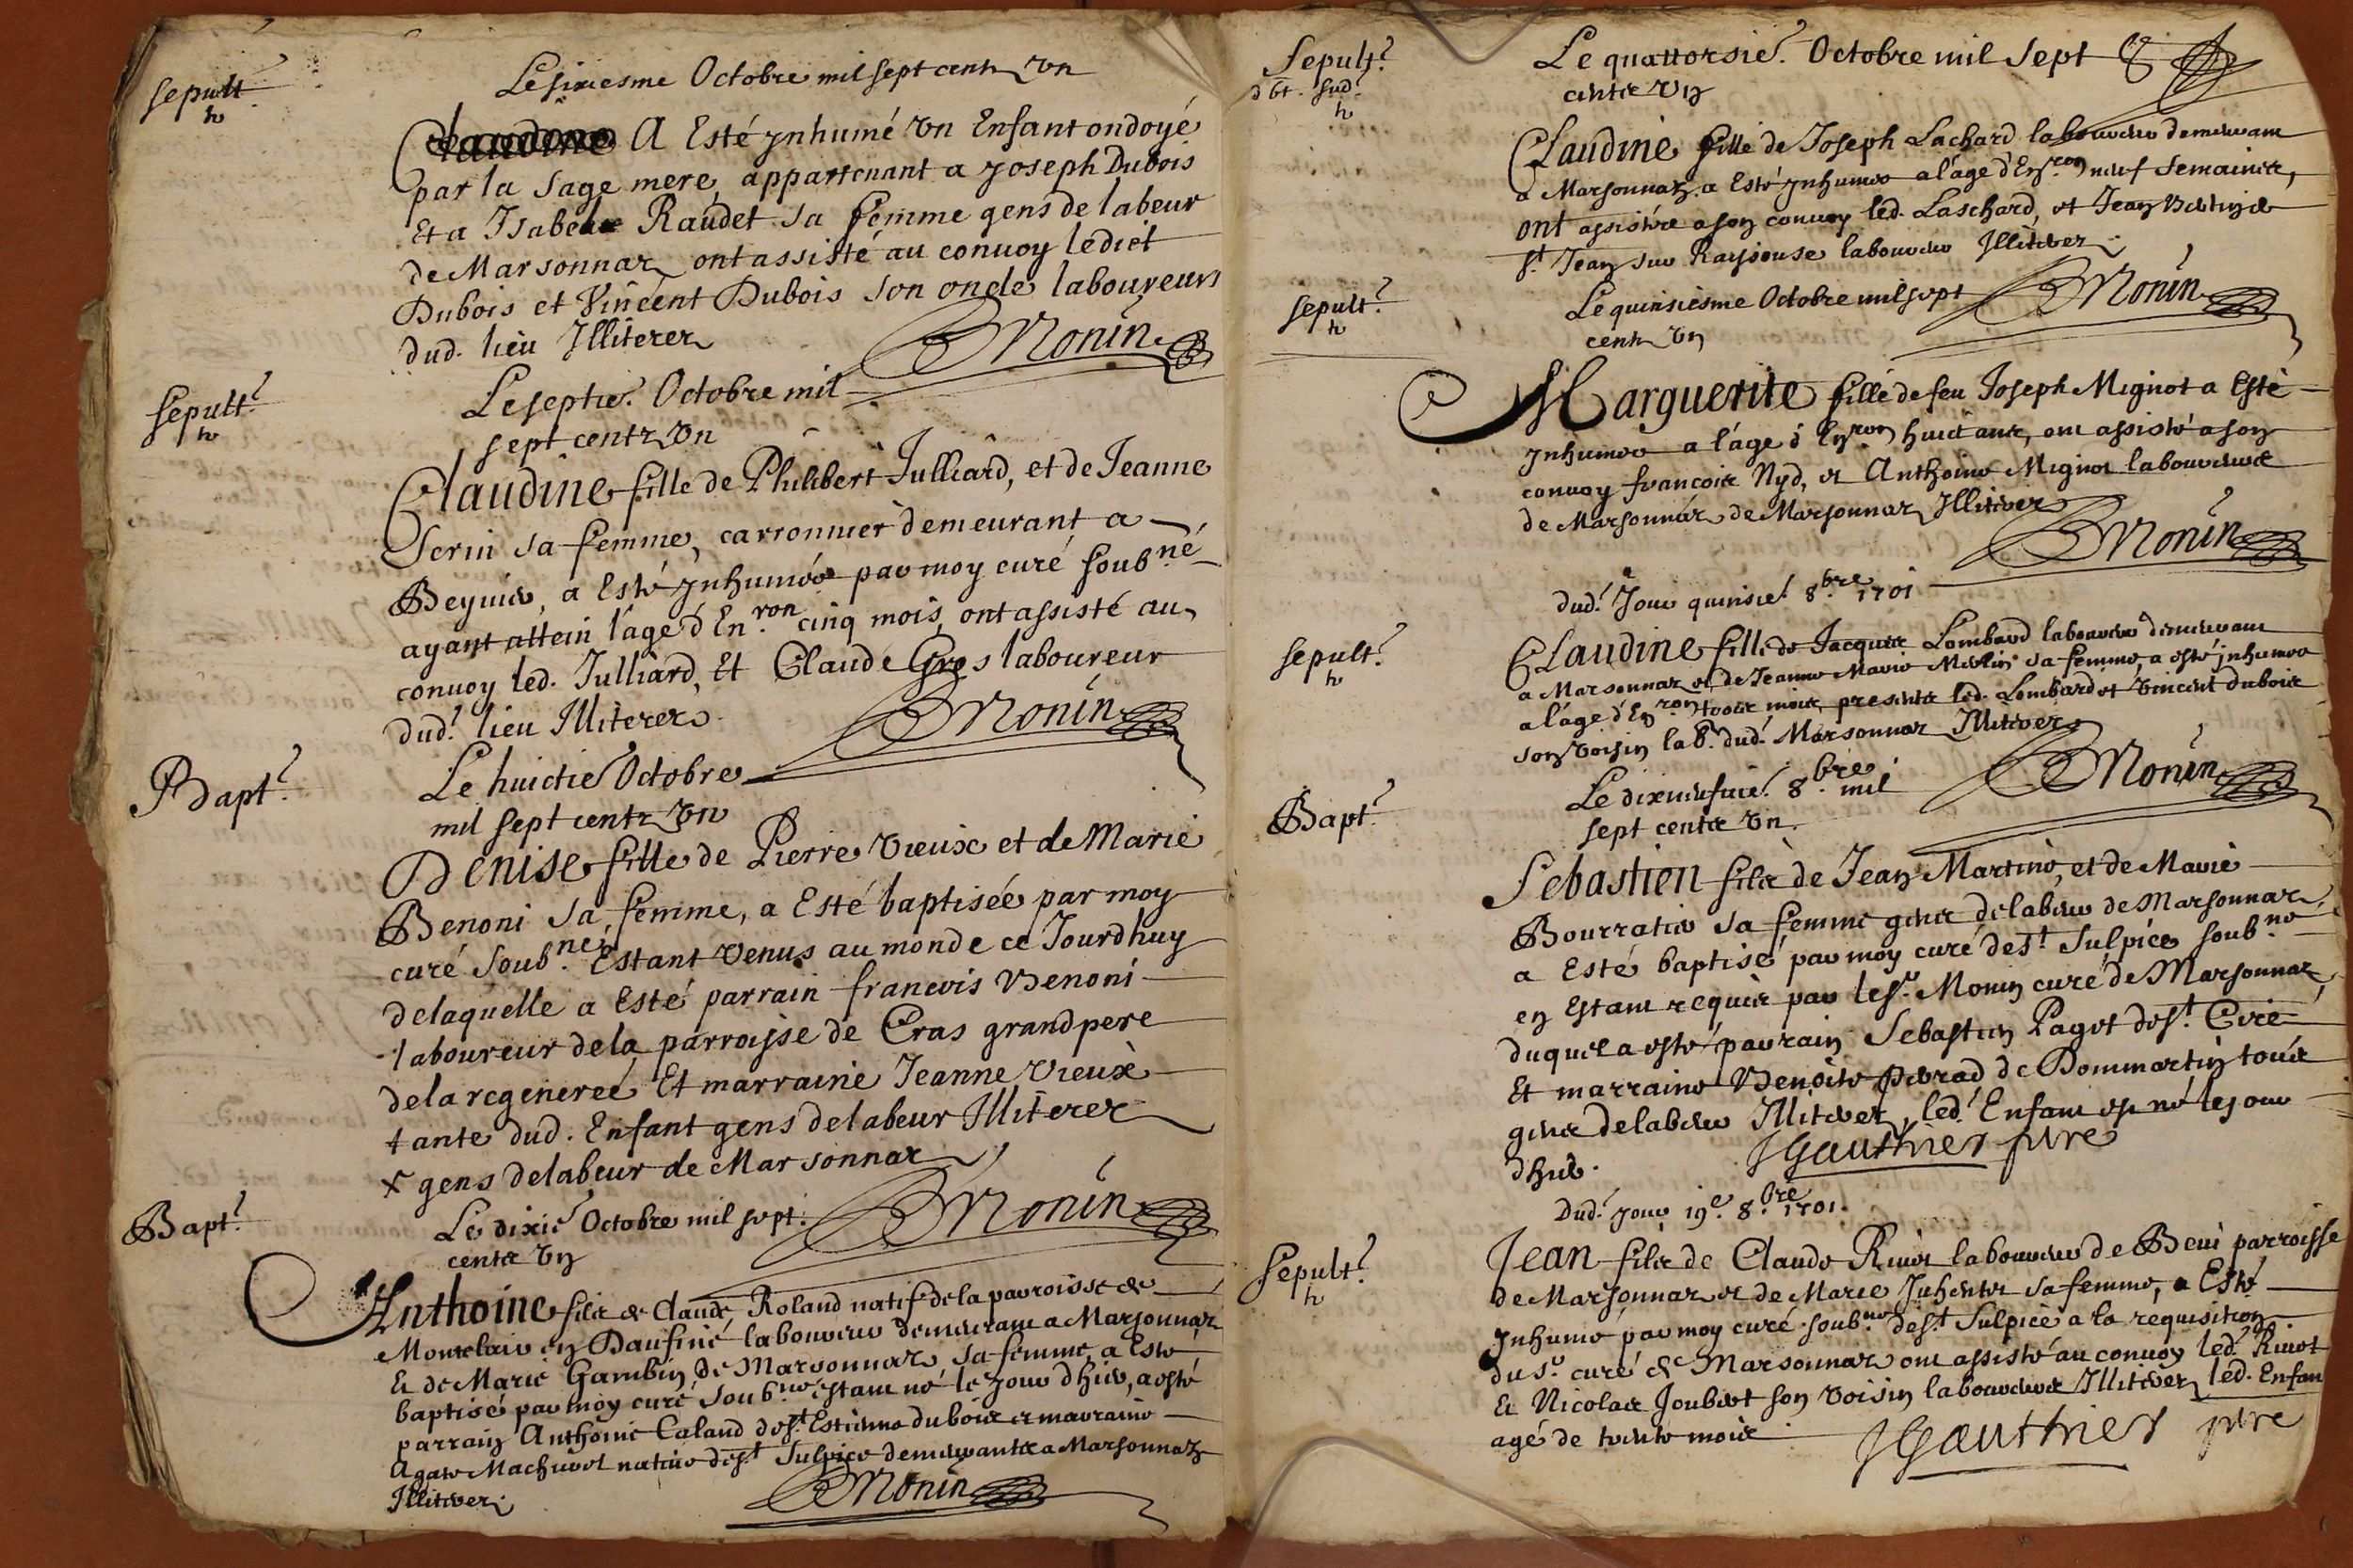 Sepult.
Le sixiesme Octobre mil sept cents vn
A Esté ynhumé vn Enfant ondoyé
par la sage mere, appartenant a Joseph Dubois
Et a Isabelle Raudet sa femme gens de labeur
de Marsonnaz ont assisté au convoy ledict
Dubois et Vincent Dubois son oncle laboureurs
dud. lieu Illiterez
BMonin
Sepult.
Le septie. Octobre mil
sept centz vn
Claudine fille de Philibert Julliard, et de Jeanne
Serui sa femme, carronnier demeurant a
Beyvie, a Esté ynhumée par moy curé soub.né
ayant attein l'age d'En.ron cinq mois, ont assisté au
convoy led. Julliard, Et Claude Gros laboureur
dud. lieu Illiterez
BMonin
Bapt.
Le huictie Octobre
mil sept centz vn
Denise fille de Pierre Vieux et de Marie
Benoni sa femme, a Esté baptisée par moy
curé soub.né Estant venus au monde ce Jourdhuy
delaquelle a Esté parrain francois Benoni
laboureur dela parroisse de Cras grandpere
dela regenereé Et marraine Jeanne Vieux
tante dud. Enfant gens delabeur Illiterez
x gens delabeur de Marsonnaz
BMonin
Bapt.
Le dixie Octobre mil sept.
cents vn
Anthoine fils de Claude Roland natif dela parroisse de
en Daufiné laboureur demeurant a Marsonnaz
Et de Marie Gambin de Marsonnaz sa femme a Esté
baptisé par moy curé soub.né estant né le jour dhier, a esté
parrain Anthoine Caland de st. Estienne dubois et marraine
Agate Machurot native de st. Sulpice demeurante a Marsonnaz
Illiterez.
BMonin
Sepult.
dbt. sud.
Le quattorsie. Octobre mil sept
cents vn
Claudine fille de Joseph Lachard laboureur demeurant
a Marsonnaz a Esté ynhumée a l'age d'En.ron neuf semaines,
ont assistée a son convoy led. Laschard, et Jean
st. Jean sur Raysouse laboureur Illiterez
BMonin
Sepult.
Le quinsiesme Octobre mil sept
cents vn
Marguerite fille de feu Joseph Mignot a Esté
ynhumée a l'age d'En.ron huict ans, ont assisté a son
convoy francois Nyd, et Anthoine Mignot laboureurs
de Marsonnaz de Marsonnaz Illiterez
BMonin
Sepult.
dud. Jour quinsie. 8.bre 1701
Claudine fille de Jacques Lombard laboureur demeurant
a Marsonnaz et de Jeanne Marie Merlin sa femme, a esté inhumée
a l'age d'En.ron trois mois, presents led. Lombard et Vincent dubois
son voisin lab.r dud. Marsonnaz Illiterez
BMonin
Bapt.
Le dixneufvie. 8.bre mil
sept cents vn.
Sebastien fils de Jean Martin, et de Marie
Bourratier sa femme gens delabeur de Marsonnaz
a Esté baptisé par moy curé de st. Sulpice soub.né
en Estant requis par le sr. Monin curé de Marsonnaz
duquel a esté parrain Sebastien Pagot de st. Cire
Et marraine Benoite de Dommartin tous
gens delabeur Illiterez, led. Enfant est né le jour
dhier.
Gauthier pbre
Sepult.
Dud. jour 19e. 8.bre 1701.
Jean fils de Claude Rivot laboureur de Beui parroisse
de Marsonnaz et de Marie sa femme, a Esté
ynhumé par moy curé soub.né de st. Sulpice a la requisition
du sr. curé de Marsonnaz ont assisté au convoy led. Rivot
Et Nicolas Joubert son voisin laboureurs Illiterez led. Enfan
agé de trente mois
Gauthier pbre